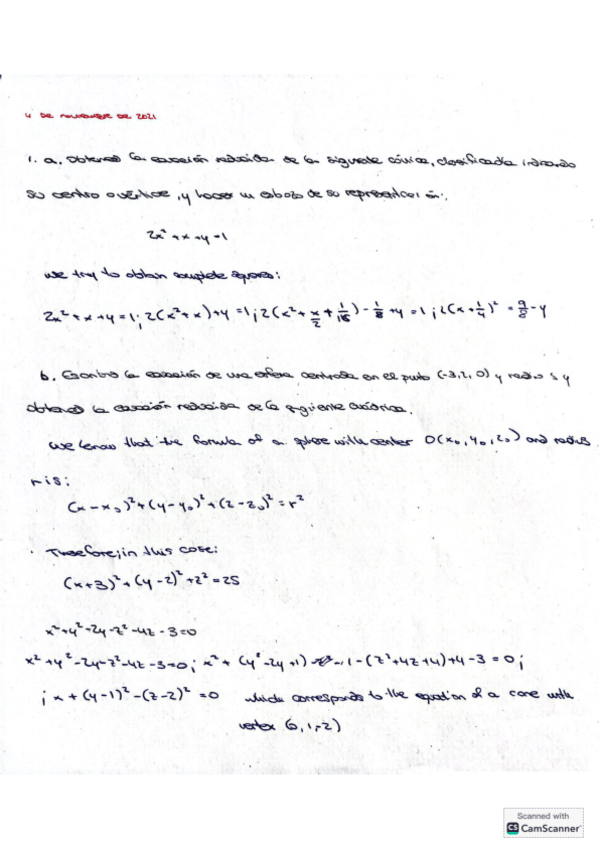 4 DE noviembre DE 2021
1. a. Obtened la ecuación reducida de la siguiente cónica, clasificadla indicando
su centro o vértice, y hacer un esbozo de su representación:
2x² + x + y = 1
we try to obtain complete squares:
2x² + x + y = 1; 2(x² + x) + y = 1; 2(x² + x/2 + 1/16) - 1/8 + y = 1; 2(x + 1/4)² = 9/8 - y
b. Escribid la ecuación de una esfera centrada en el punto (-3, 2, 0) y radio 5 y
obtened la ecuación reducida de la siguiente cuádrica.
We know that the formula of a sphere with center O(x₀, y₀, z₀) and radius
r is:
(x - x₀)² + (y - y₀)² + (z - z₀)² = r²
Therefore, in this case:
(x + 3)² + (y - 2)² + z² = 25
x² + y² - 2y - z² - 4z - 3 = 0
x² + y² - 2y - z² - 4z - 3 = 0; x² + (y² - 2y + 1) - 1 - (z² + 4z + 4) + 4 - 3 = 0;
; x + (y - 1)² - (z - 2)² = 0 which corresponds to the equation of a cone with
vertex (0, 1, -2)
Scanned with
CS CamScanner